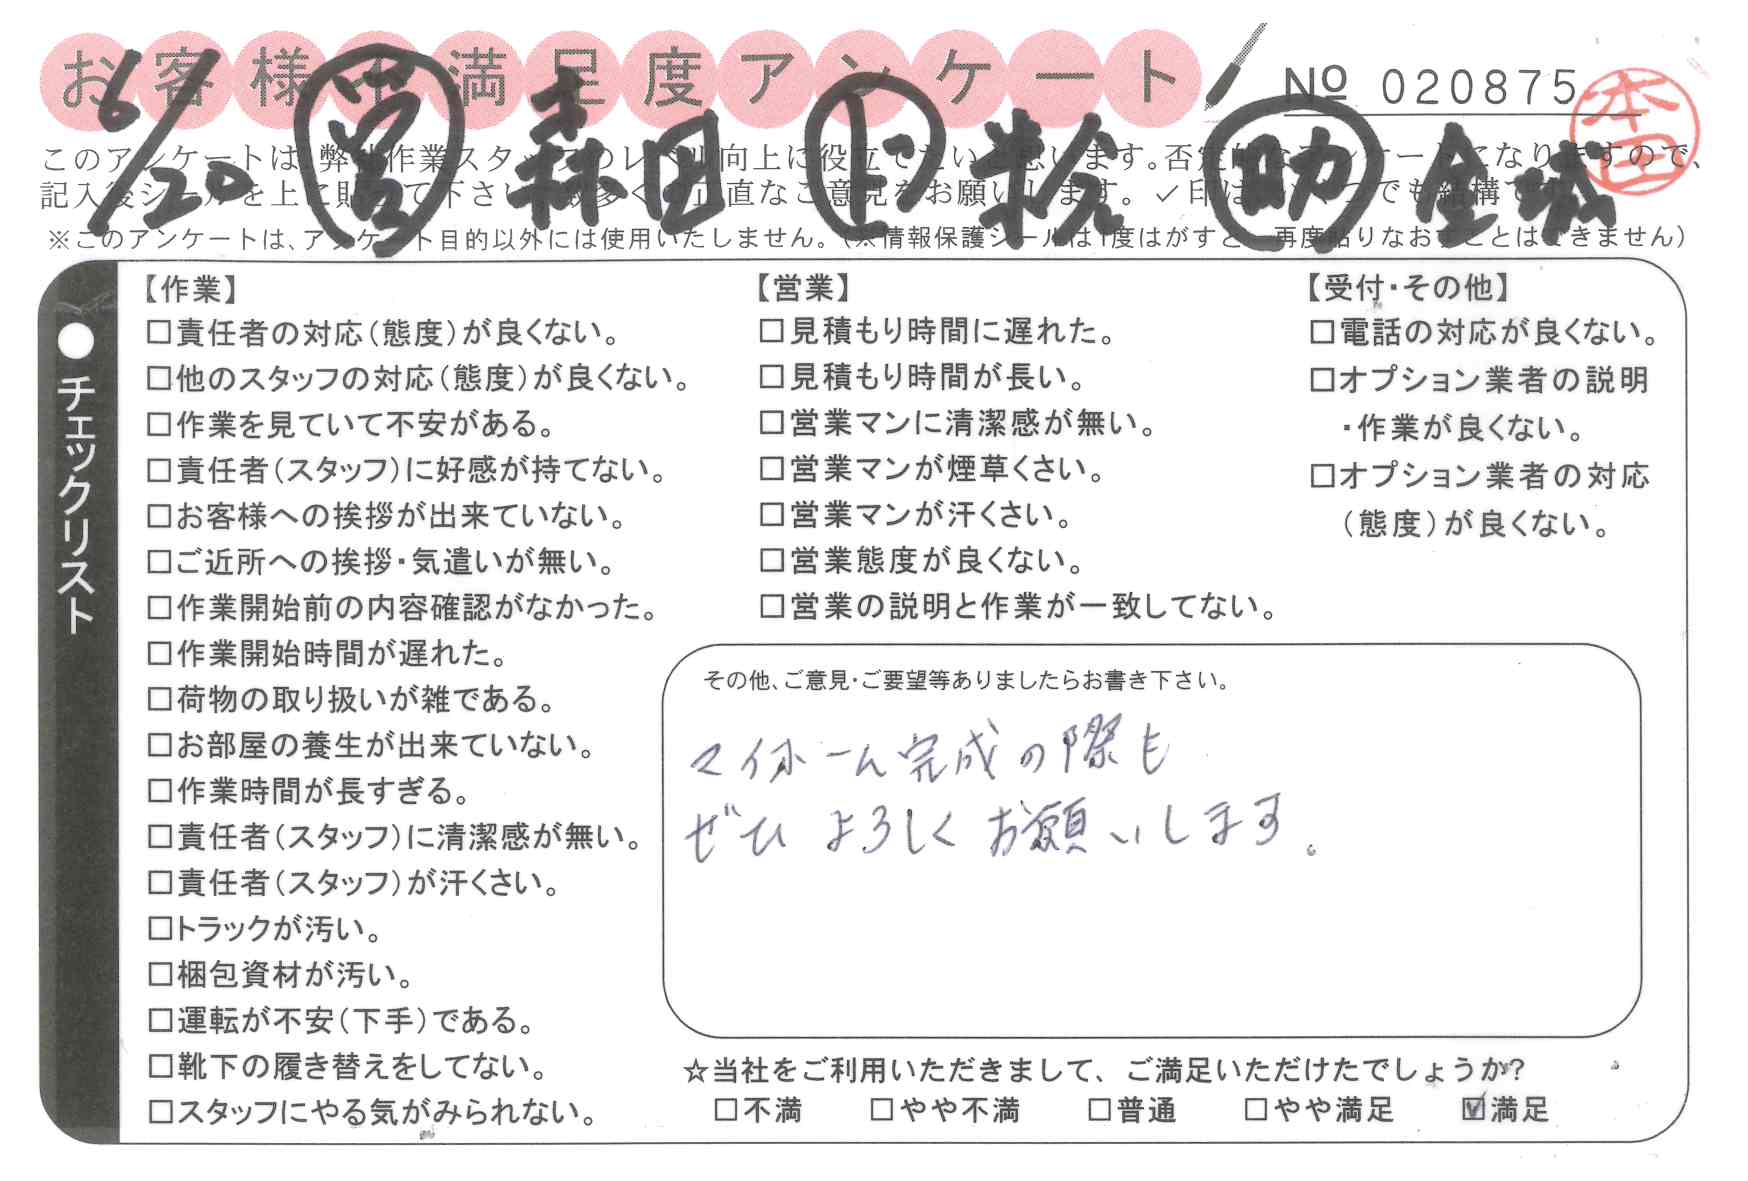 お客様不満足度アンケート
№ 020875
本田
6/20 営 森田 上 粉 助 金城
このアンケートは、弊社作業スタッフのレベル向上に役立てたいと思います。否定的なアンケートになりますので、
記入後シールを上に貼って下さい。数多くの正直なご意見をお願いします。✓印はいくつでも結構です。
※このアンケートは、アンケート目的以外には使用いたしません。(※情報保護シールは1度はがすと、再度貼りなおすことはできません)
●チェックリスト
【作業】
□責任者の対応(態度)が良くない。
□他のスタッフの対応(態度)が良くない。
□作業を見ていて不安がある。
□責任者(スタッフ)に好感が持てない。
□お客様への挨拶が出来ていない。
□ご近所への挨拶・気遣いが無い。
□作業開始前の内容確認がなかった。
□作業開始時間が遅れた。
□荷物の取り扱いが雑である。
□お部屋の養生が出来ていない。
□作業時間が長すぎる。
□責任者(スタッフ)に清潔感が無い。
□責任者(スタッフ)が汗くさい。
□トラックが汚い。
□梱包資材が汚い。
□運転が不安(下手)である。
□靴下の履き替えをしてない。
□スタッフにやる気がみられない。
【営業】
□見積もり時間に遅れた。
□見積もり時間が長い。
□営業マンに清潔感が無い。
□営業マンが煙草くさい。
□営業マンが汗くさい。
□営業態度が良くない。
□営業の説明と作業が一致してない。
【受付・その他】
□電話の対応が良くない。
□オプション業者の説明
・作業が良くない。
□オプション業者の対応
(態度)が良くない。
その他、ご意見・ご要望等ありましたらお書き下さい。
マイホーム完成の際も
ぜひ よろしく お願いします。
☆当社をご利用いただきまして、ご満足いただけたでしょうか?
□不満 □やや不満 □普通 □やや満足 ☑満足